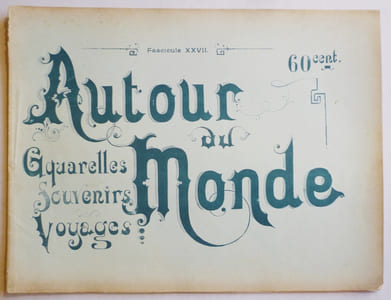 Fascicule XXVII.
60 cent.
Autour
du
Monde
Aquarelles
Souvenirs
Voyages